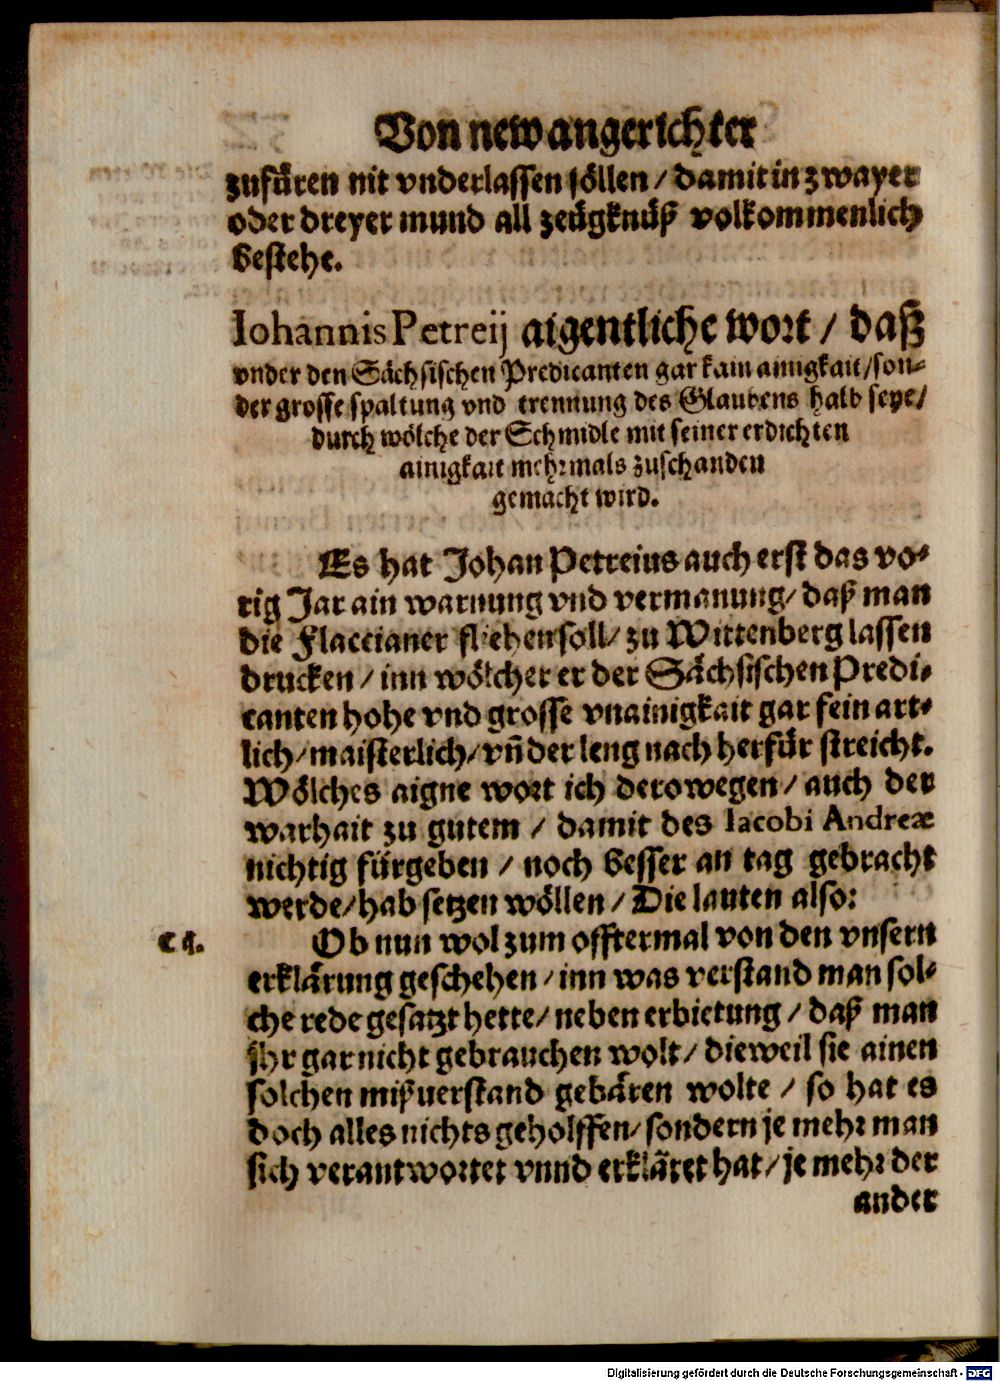 Von new angerichter
zufüren nit vnderlassen söllen / damit in zwayer
oder dreyer mund all zeügknüß volkommenlich
bestehe.
Iohannis Petreij aigentliche wort / daß
vnder den Sächsischen Predicanten gar kain ainigkait / son-
der grosse spaltung vnd trennung des Glaubens halb seye /
durch wölche der Schmidle mit seiner erdichten
ainigkait mehrmals zuschanden
gemacht wird.
Es hat Johan Petreius auch erst das vo-
rig Jar ain warnung vnd vermanung / daß man
die Flaccianer fliehen soll / zu Wittenberg lassen
drucken / inn wölcher er der Sächsischen Predi-
canten hohe vnd grosse vnainigkait gar fein art-
lich / maisterlich / vñ der leng nach herfür streicht.
Wölches aigne wort ich derowegen / auch der
warhait zu gutem / damit des Iacobi Andreæ
nichtig fürgeben / noch besser an tag gebracht
werde / hab setzen wöllen / Die lauten also:
C 4.
Ob nun wol zum offtermal von den vnsern
erklärung geschehen / inn was verstand man sol-
che rede gesatzt hette / neben erbietung / daß man
ihr gar nicht gebrauchen wolt / dieweil sie ainen
solchen mißuerstand gebären wolte / so hat es
doch alles nichts geholffen / sondern je mehr man
sich verantwortet vnnd erkläret hat / je mehr der
ander
Digitalisierung gefördert durch die Deutsche Forschungsgemeinschaft - DFG